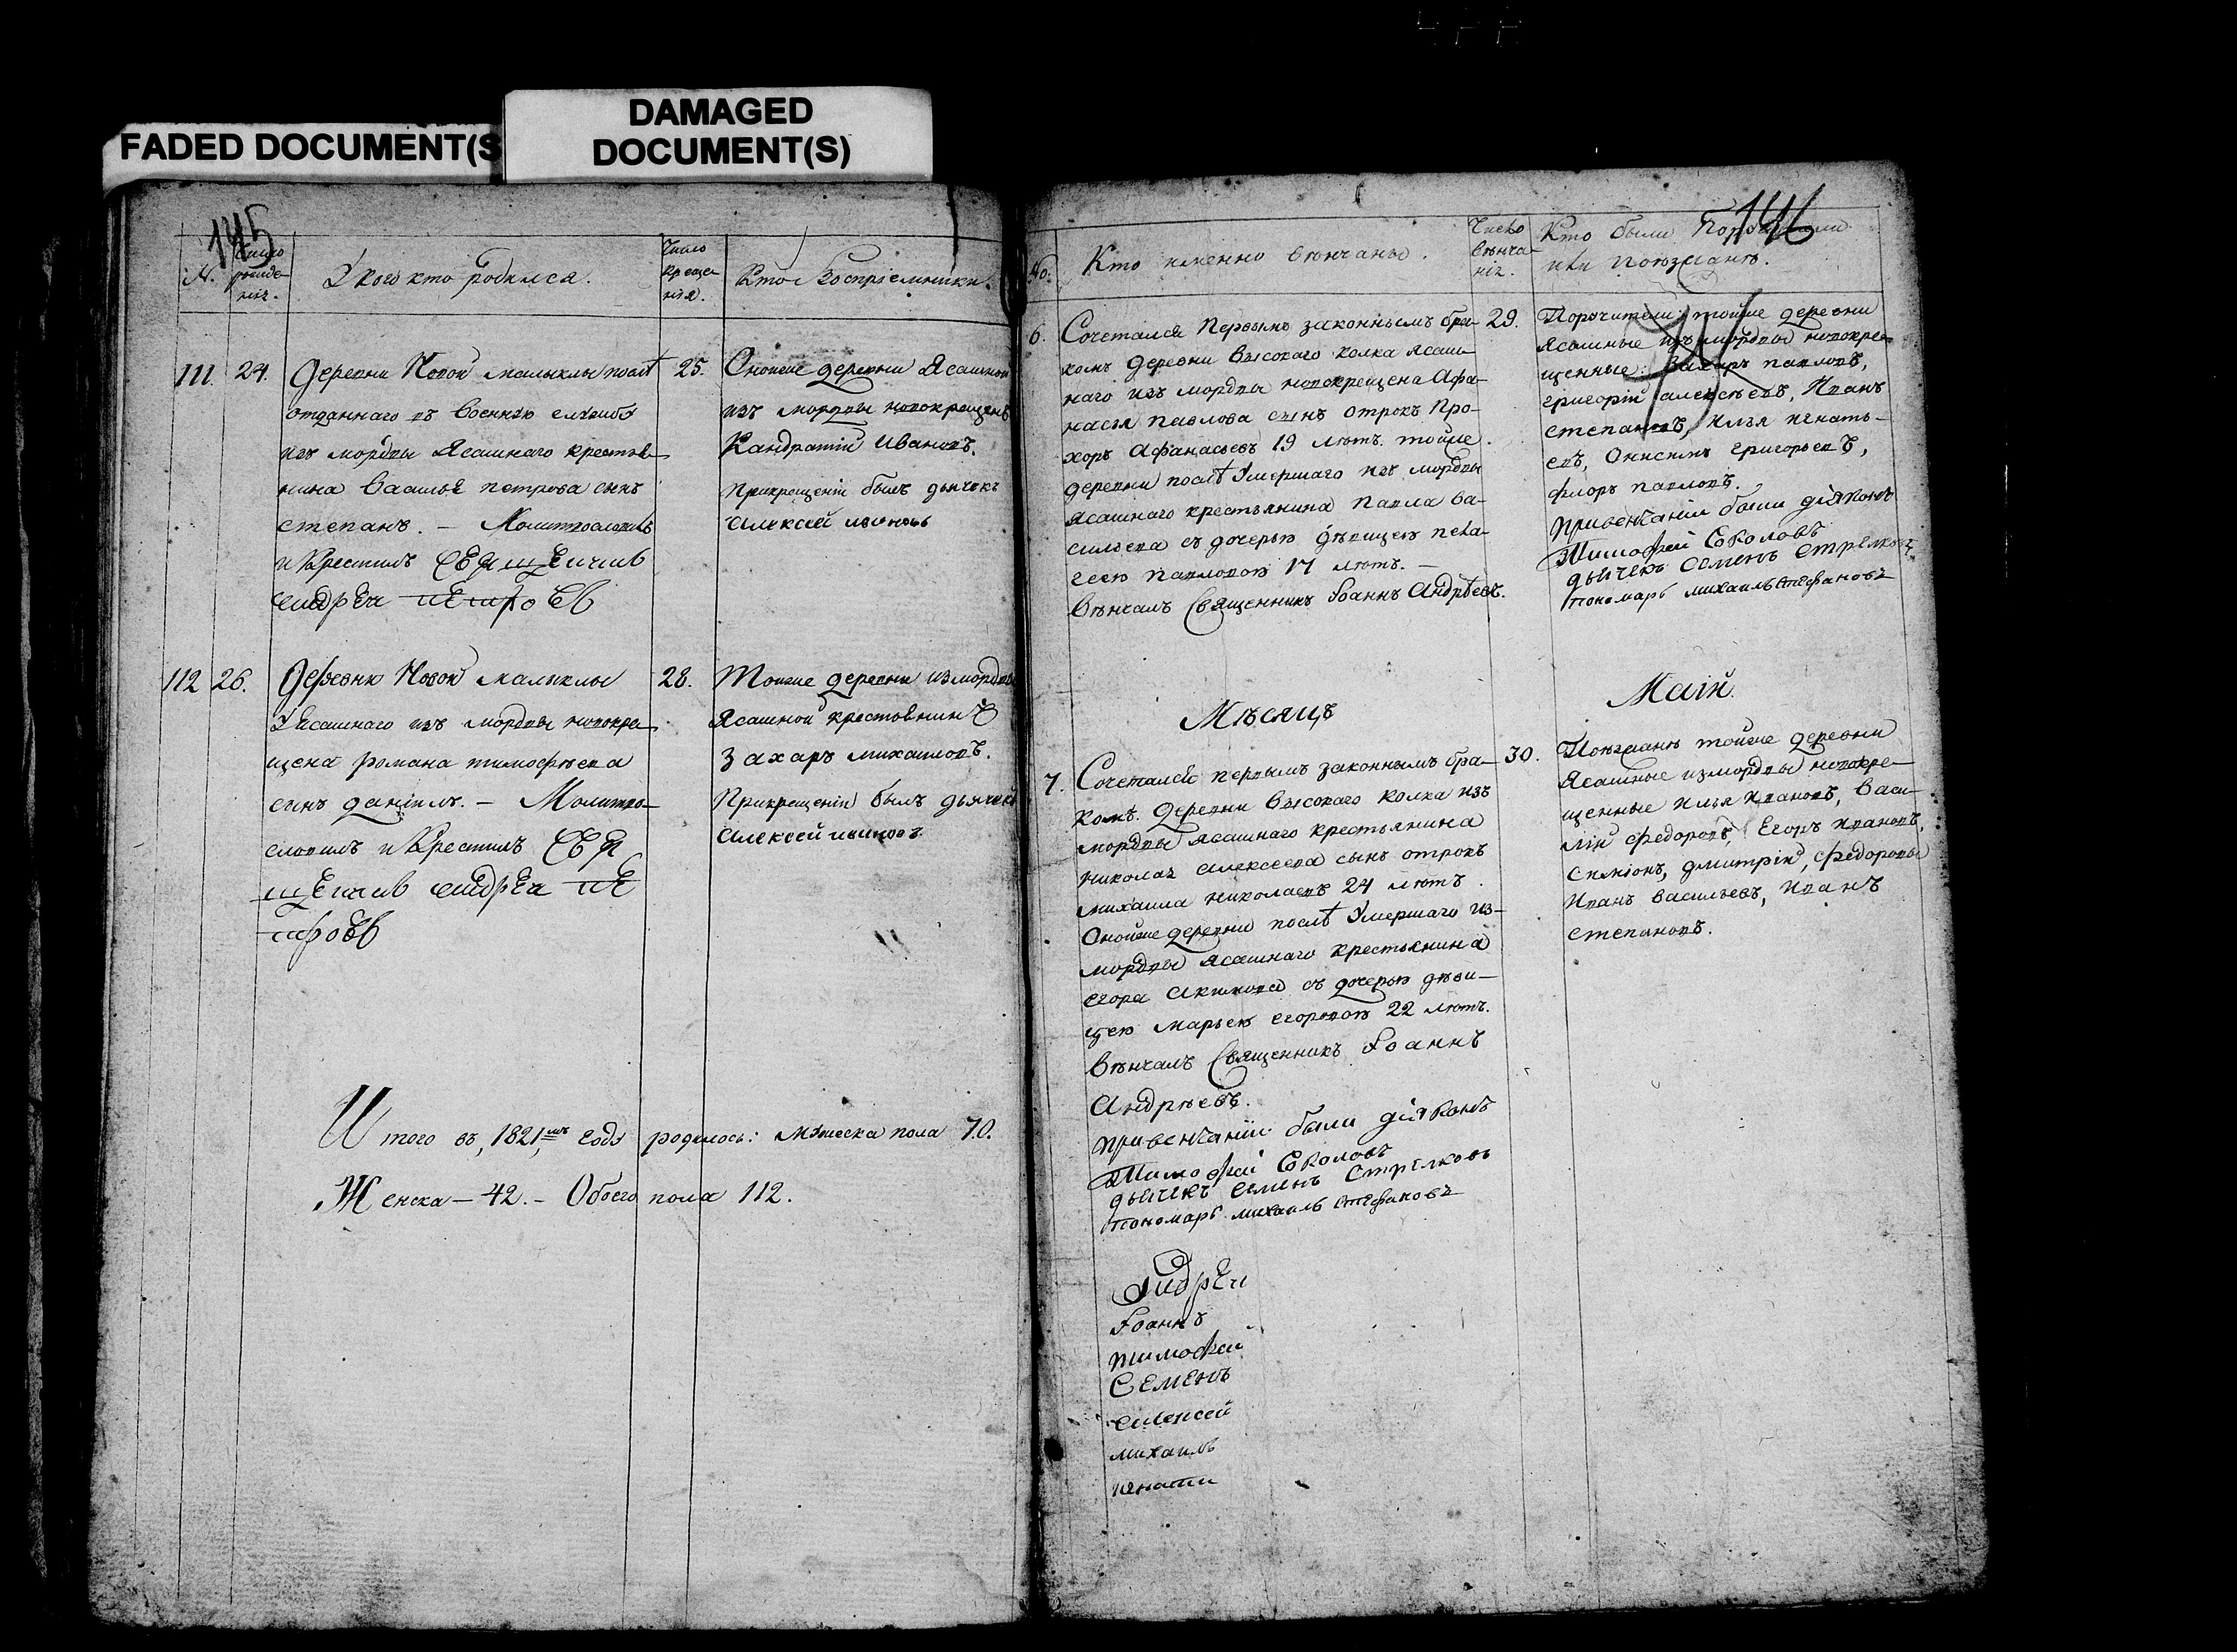 FADED DOCUMENT(S
DAMAGED
DOCUMENT(S)
145
№.
Число
рожде-
нія.
У кого кто родился.
Число
креще-
нія.
Кто Воспріемники.
111.
24.
Деревни Новой малыклы послѣ
отданнаго въ военную службу
изъ мордвы Ясашнаго крестья-
нина Василья петрова сынъ
степанъ. – Молитвословилъ
и крестилъ священникъ
андрей петровъ
25.
Оноиже деревни Ясашной
изъ мордвы новокрещенъ
Кандратій Ивановъ.
Прикрещеніи былъ дьячекъ
алексей ивановъ
112
26.
Деревни Новой малыклы
У Ясашнаго изъ мордвы новокре-
щена романа тимофѣева
сынъ даніилъ. – Молитво-
словилъ и крестилъ свя
щенникъ андрей пе
тровъ
28.
Тоиже деревни измордвы
Ясашной крестьянинъ
Захаръ михаиловъ.
Прикрещеніи былъ дьячекъ
алексей ивановъ
Итого въ, 1821,мъ году родилось: мужеска пола 70.
Женска – 42. – Обоего пола 112.
146
№.
Кто именно вѣнчаны.
Число
вѣнча-
нія.
Кто были
или поѣзжанѣ.
6.
Сочетался первымъ законнымъ бра-
комъ деревни высокаго колка ясаш-
наго изъ мордвы новокрещена Афа-
насья павлова сынъ отрокъ Про-
хоръ Афанасьевъ 19 лѣтъ. тойже
деревни послѣ Умершаго изъ мордвы
Ясашнаго крестьянина Павла ва-
сильева съ дочерью дѣвицею пела-
геею павловою 17 лѣтъ. –
вѣнчалъ Священникъ Іоаннъ Андрѣевъ.
29.
Поручители: тойже деревни
Ясашные изъ мордвы новокре-
щенные: Захаръ павловъ,
григорій алексѣевъ, Иванъ
степановъ, илья игнать-
евъ, Онисимъ григорьевъ,
флоръ павловъ.
привенчаніи были діяконъ
Тимофей Соколовъ
дьячекъ семенъ стрелковъ
пономарь михаилъ стефановъ
Мѣсяцъ
Маій.
7.
Сочетался первымъ законнымъ бра-
комъ. деревни высокаго колка изъ
мордвы ясашнаго крестьянина
николая алексеева сынъ отрокъ
михаила николаевъ 24 лѣтъ.
Онойже деревни послѣ Умершаго из-
мордвы ясашнаго крестьянина
егора акимова съ дочерью дѣви-
цею марьею егоровою 22 лѣтъ.
вѣнчалъ Священникъ Іоаннъ
Андрѣевъ.
привенчаніи были діяконъ
Тимофей Соколовъ
дьячекъ семенъ стрелковъ
пономарь михаилъ стефановъ
30.
Поѣзжанѣ тойже деревни
Ясашные измордвы новокре-
щенные илья ивановъ, васи-
лій федоровъ, Егоръ ивановъ,
симіонъ, дмитрій, федоровы
Иванъ васильевъ, иванъ
степановъ.
андрей
Іоаннъ
тимофей
семенъ
алексей
михаилъ
игнати